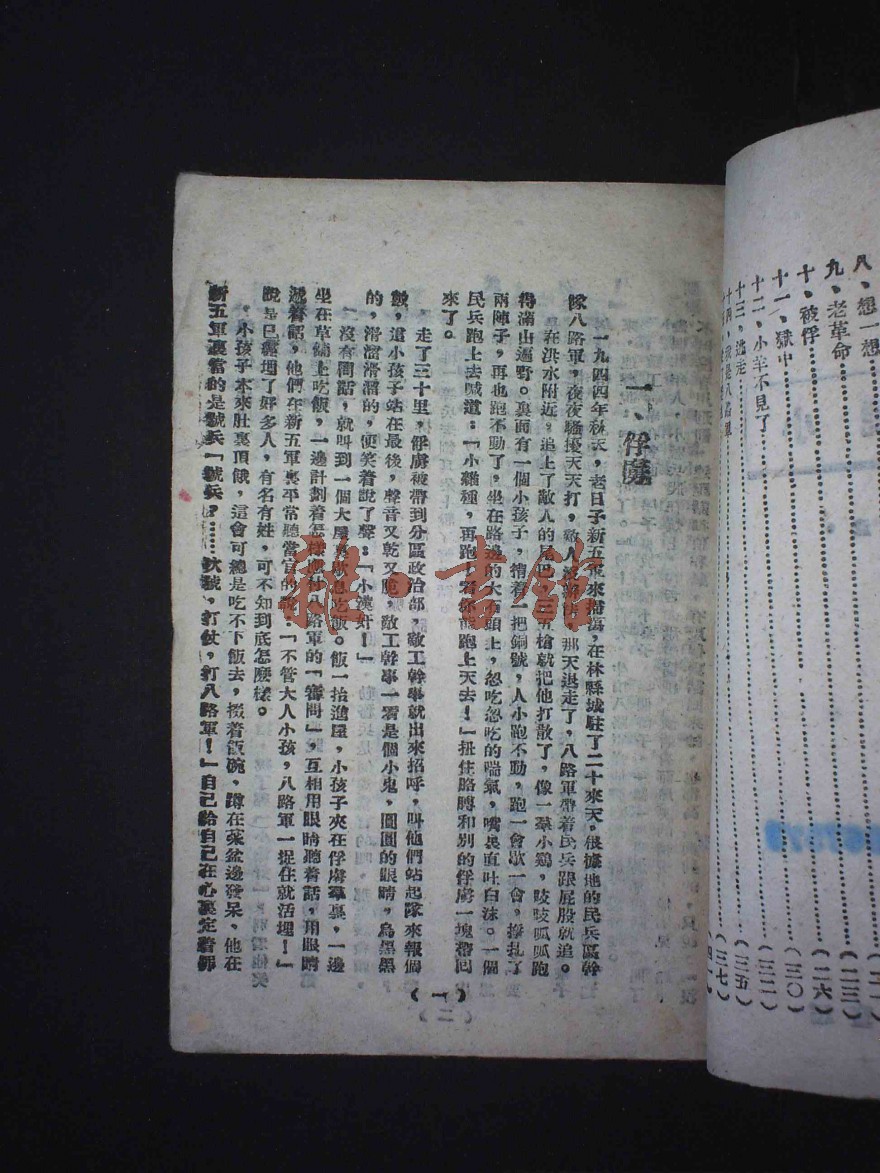 八、想一想
九、老革命……(二三)
十、被俘……(二六)
十一、獄中……(三〇)
十二、小羊不見了……(三二)
十三、逃走……(三五)
(三七)
一、俘虜
一九四四年秋天，老日子新五軍來掃蕩，在林縣城駐了二十來天。根據地的民兵區幹
隊八路軍，夜夜騷擾天天打，敵人沒辦法，那天退走了，八路軍帶着民兵跟屁股就追。
在洪水附近，追上了敵人的尾巴，三五槍就把他打散了，像一羣小鷄，吱吱呱呱跑
得滿山遍野。裏面有一個小孩子，揹着一把銅號，人小跑不動，跑一會歇一會，掙扎了
兩陣子，再也跑不動了，坐在路邊的大石頭上，忽吃忽吃的喘氣，嘴裏直吐白沫。一個
民兵跑上去喊道：「小雜種，再跑！看你能跑上天去！」扭住胳膊和別的俘虜一塊帶回
來了。
走了三十里，俘虜被帶到分區政治部，敵工幹事就出來招呼，叫他們站起隊來報個
數，這小孩子站在最後，聲音又乾又脆，敵工幹事一看是個小鬼，圓圓的眼睛，烏黑黑
的，滑溜滑溜的，便笑着說了聲：「小漢奸！」
沒有問話，就叫到一個大屋裏歇息吃飯。飯一抬進屋，小孩子夾在俘虜羣裏，一邊
坐在草鋪上吃飯，一邊計劃着怎樣應付八路軍的「審問」，互相用眼睛聽着話，用眼睛
遞着話，他們在新五軍裏平常聽當官的說：「不管大人小孩，八路軍一捉住就活埋！」
說是已經埋了好多人，有名有姓，可不知到底怎麼樣。
小孩子本來肚裏頂餓，這會可總是吃不下飯去，掇着飯碗，蹲在菜盆邊發呆，他在
新五軍裏當的是號兵「號兵？……吹號，打仗，打八路軍！」自己給自己在心裏定着罪
(一)
雜·書館